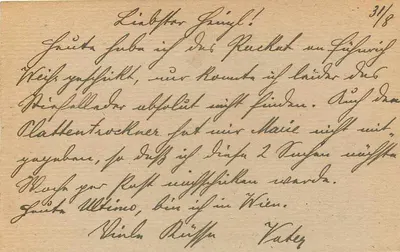 31/8
Liebster Heinzl!
Heute habe ich das Packet an Heinrich
Weihs geschickt, nur konnte ich leider das
Stiefelleder absolut nicht finden. Auch den
Plattentrockner hat mir Marie nicht mit-
gegeben, so daß ich diese 2 Sachen nächste
Woche per Post nachschicken werde.
Heute Ultimo, bin ich in Wien.
Viele Küsse Vater